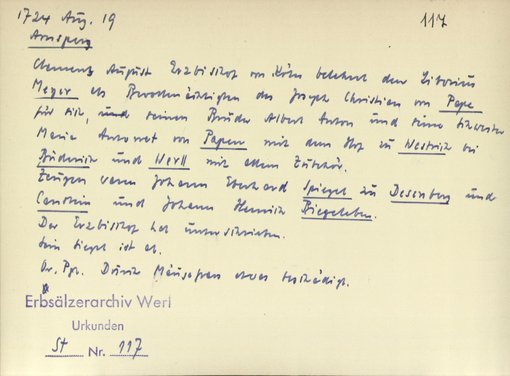 1724 Aug. 19
117
Arnsperg
Clemens August Erzbischof von Köln belehnt den Liborius
Meyer als Bevollmächtigten des Joseph Christian von Pape
für sich, und seinen Bruder Albert Anton und seine Schwester
Maria Antonet von Papen mit dem Hof zu Westrich bei
Büderich und Werll mit allem Zubehör.
Zeugen waren Johann Eberhard Spiegel zu Desenberg und
Canstein und Johann Henrich Biegeleben.
Der Erzbischof hat unterschrieben.
Sein Siegel ist ab.
Or. Pgt. Durch Mäusefrass etwas beschädigt.
Erbsälzerarchiv Werl
Urkunden
St Nr. 117